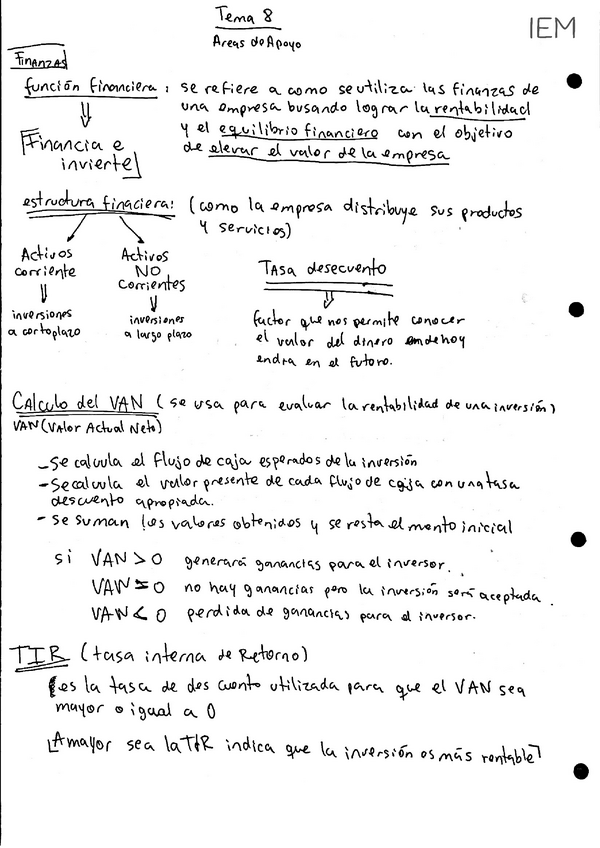 Tema 8
IEM
Areas de Apoyo
Finanzas
función financiera: se refiere a como se utiliza las finanzas de
una empresa busando lograr la rentabilidad
y el equilibrio financiero con el objetivo
de elevar el valor de la empresa
[Financia e
invierte]
estructura finaciera: (como la empresa distribuye sus productos
y servicios)
Activos
corriente
Activos
NO
Corrientes
inversiones
a corto plazo
inversiones
a largo plazo
TAsa desecuento
factor que nos permite conocer
el valor del dinero de hoy
endra en el futuro.
CAlculo del VAN (se usa para evaluar la rentabilidad de una inversión)
VAN (VAlor Actual Neto)
- Se calcula el flujo de caja esperados de la inversión
- Se calcula el valor presente de cada flujo de caja con una tasa
descuento apropiada.
- Se suman los valores obtenidos y se resta el monto inicial
si VAN > 0 generará ganancias para el inversor.
VAN = 0 no hay ganancias pero la inversión será aceptada.
VAN < 0 perdida de ganancias para el inversor.
TIR (tasa interna de Retorno)
[es la tasa de des cuento utilizada para que el VAN sea
mayor o igual a 0
[A mayor sea la TIR indica que la inversión es más rentable]